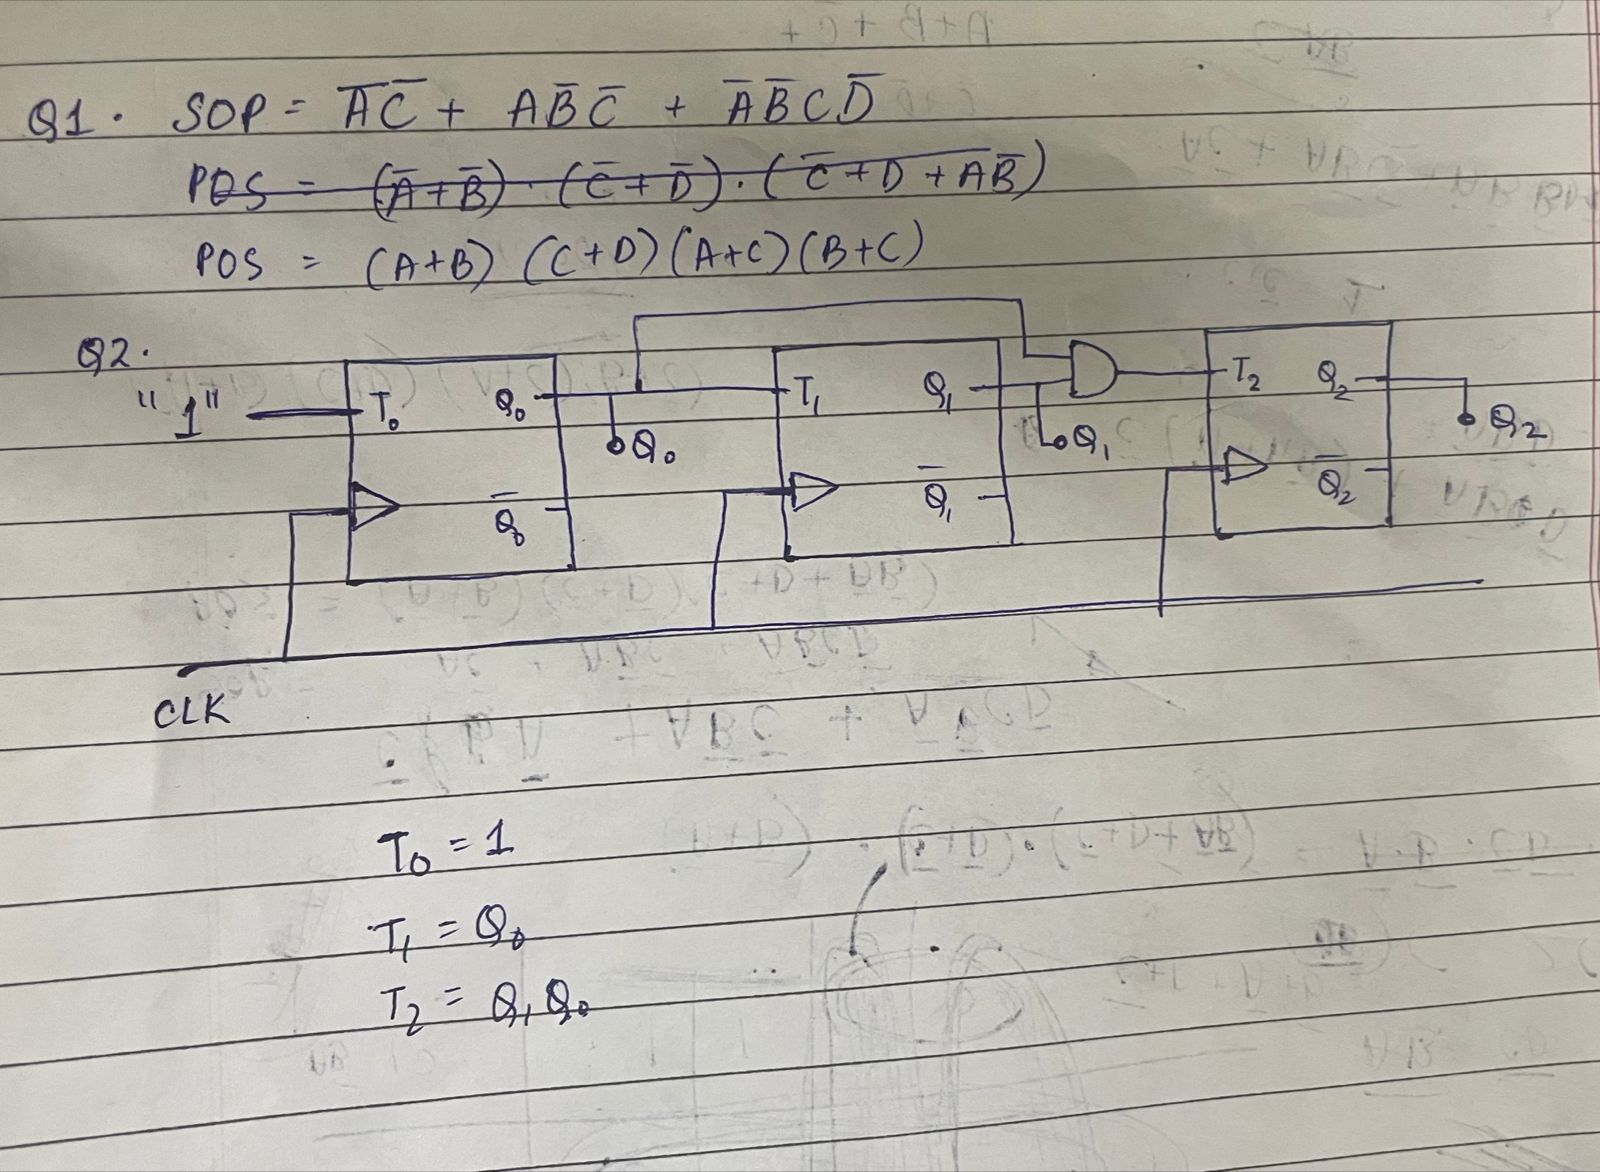 Q1. SOP = A̅C̅ + AB̅C̅ + A̅B̅CD̅
POS = (A̅+B̅) · (C̅+D̅) · (C̅+D+AB̅)
POS = (A+B) (C+D) (A+C) (B+C)
Q2.
"1" T₀ Q₀ Q₀ T₁ Q₁ Q₁ T₂ Q₂ Q₂
Q̅₀ Q̅₁ Q̅₂
CLK
T₀ = 1
T₁ = Q₀
T₂ = Q₁Q₀